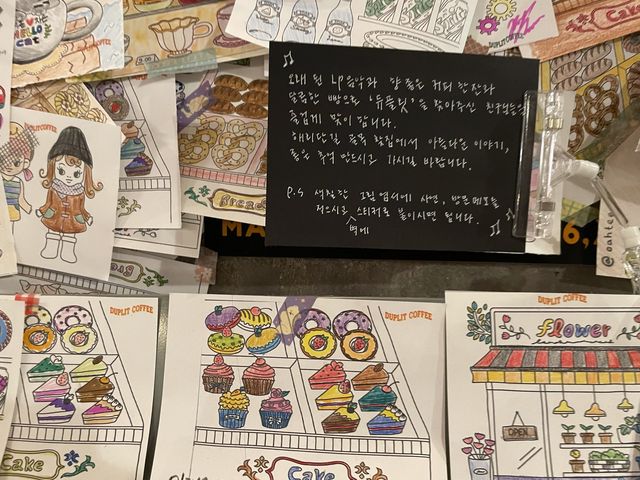 HELLO
cat
DUPLIT COFFEE
DUPLIT COFFEE
오래 된 LP음악과 향 좋은 커피 한잔과
달콤한 빵으로 '듀플릿'을 찾아주신 친구분들을
즐겁게 맞이 합니다.
해리단길 골목 찻집에서 아름다운 이야기,
좋은 추억 만드시고 가시길 바랍니다.
P.S 색칠한 그림엽서에 사연, 방문메모를
적으시고 스티커로 붙이시면 됩니다.
벽에
Bread
MA
6,
@oahtea
DUPLIT COFFEE
DUPLIT COFFEE
DUPLIT COFFEE
flower
OPEN
Cake
Cake